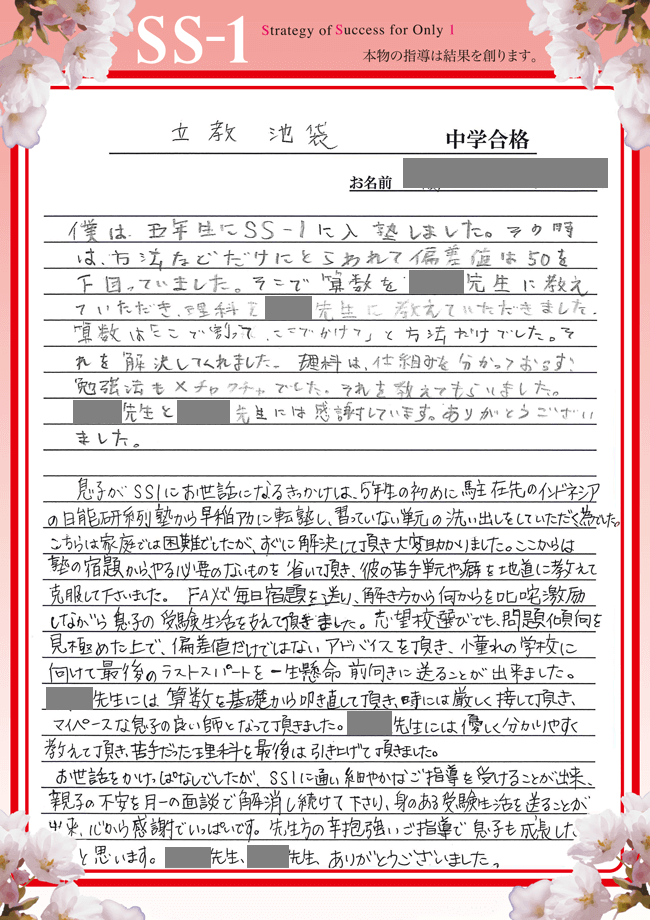 SS-1
Strategy of Success for Only 1
本物の指導は結果を創ります。
立教 池袋 中学合格
お名前
僕は、五年生にSS-1に入塾しました。その時
は、方法などだけにとらわれて偏差値は50を
下回っていました。そこで算数を 先生に教え
ていただき、理科を 先生に教えていただきました。
算数は「ここで割って、ここでかけて」と方法だけでした。そ
れを解決してくれました。理科は、仕組みを分かっておらず、
勉強法もメチャクチャでした。それを教えてもらいました。
先生と 先生には感謝しています。ありがとうござい
ました。
息子がSS1にお世話になるきっかけは、5年生の初めに駐在先のインドネシア
の日能研系列塾から早稲アカに転塾し、習っていない単元の洗い出しをしていただく為でした。
こちらは家庭では困難でしたが、すぐに解決して頂き大変助かりました。ここからは
塾の宿題から、やる必要のないものを省いて頂き、彼の苦手単元や癖を地道に教えて
克服して下さいました。FAXで毎日宿題を送り、解き方から何からを叱咤激励
しながら息子の受験生活を支えて頂きました。志望校選びでも、問題傾向を
見極めた上で、偏差値だけではないアドバイスを頂き、憧れの学校に
向けて最後のラストスパートを一生懸命前向きに送ることが出来ました。
先生には算数を基礎から叩き直して頂き、時には厳しく接して頂き、
マイペースな息子の良い師となって頂きました。 先生には優しく分かりやすく
教えて頂き、苦手だった理科を最後は引き上げて頂きました。
お世話をかけっぱなしでしたが、SS1に通い細やかなご指導を受けることが出来、
親子の不安を月一の面談で解消し続けて下さり、身のある受験生活を送ることが
出来、心から感謝でいっぱいです。先生方の辛抱強いご指導で息子も成長した
と思います。 先生、 先生、ありがとうございました。